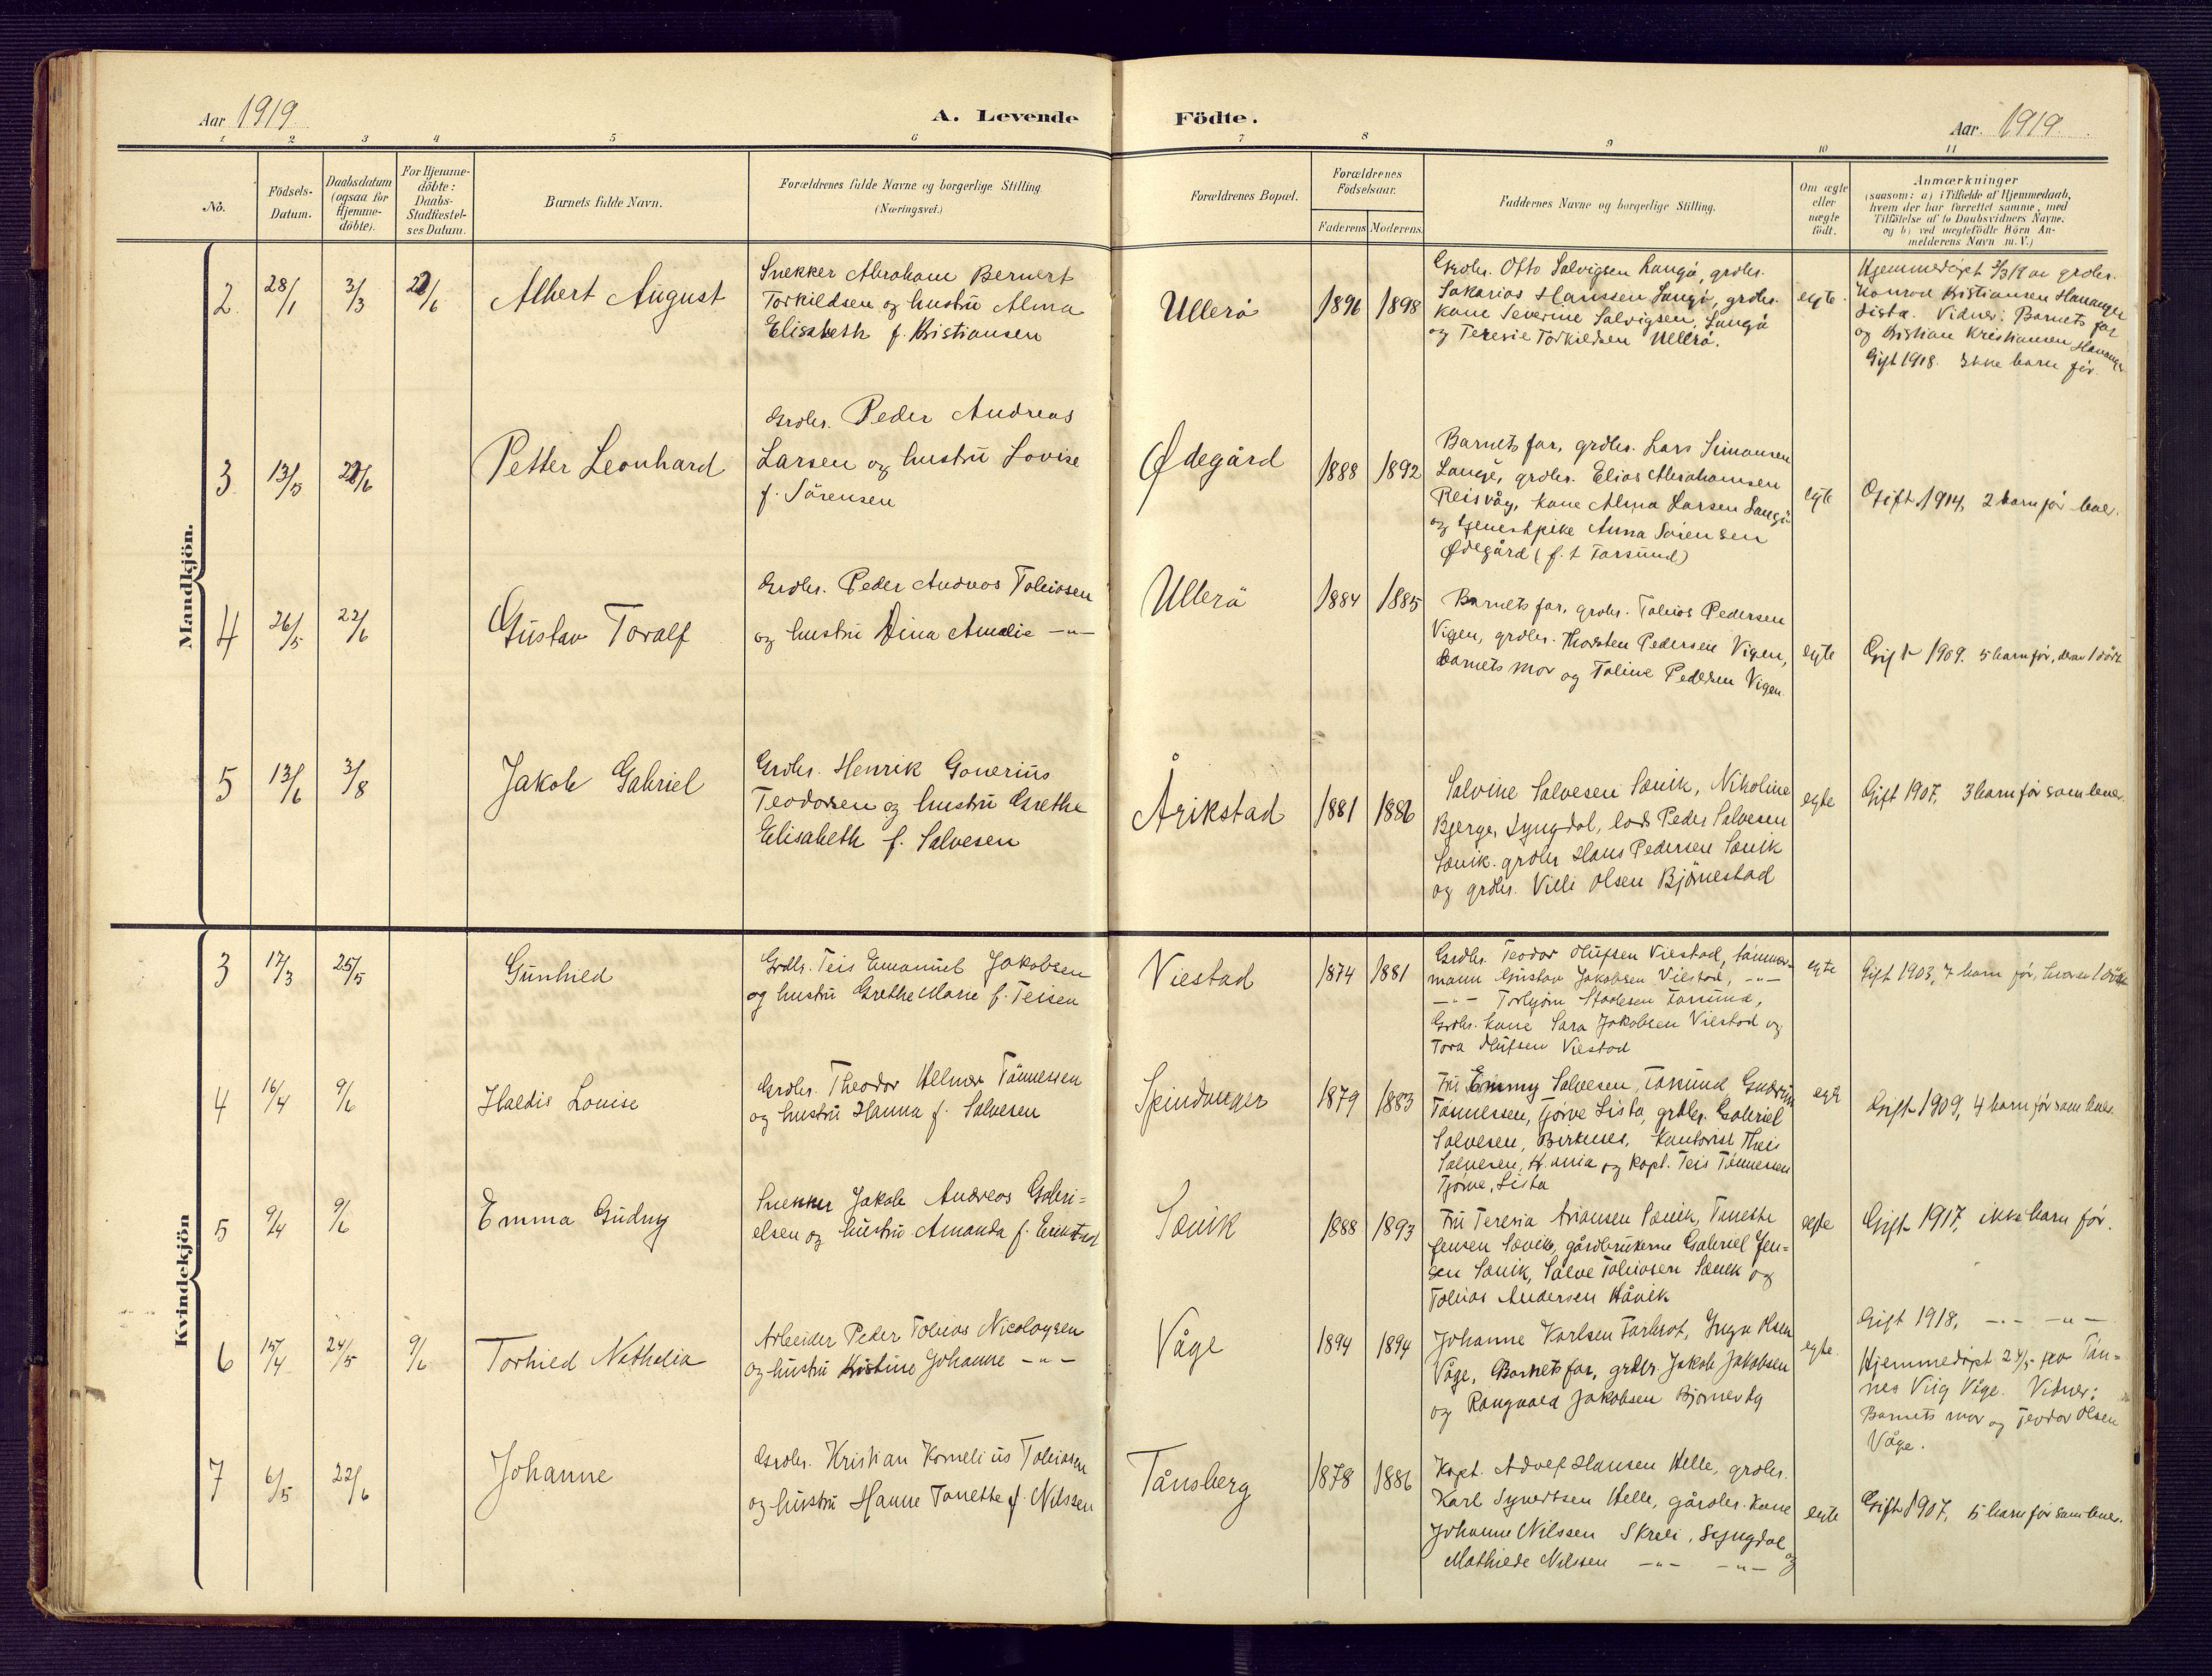 Aar 1919.
A. Levende
Födte.
Aar. 1919.
1 2 3 4 5 6 7 8 9 10 11
No.
Födsels-
Datum.
Daabsdatum
(ogsaa for
Hjemme-
döbte).
For Hjemme-
döbte:
Daabs-
Stadfæstel-
ses Datum.
Barnets fulde Navn.
Forældrenes fulde Navne og borgerlige Stilling
(Næringsvei.)
Forældrenes Bopæl.
Forældrenes
Födselsaar.
Faderens Moderens
Faddernes Navne og borgerlige Stilling.
Om ægte
eller
uægte
födt.
Anmærkninger
(saasom: a) i Tilfælde af Hjemmedaab,
hvem der har forrettet samme, med
Tilföielse af to Daabsvidners Navne,
og b) ved uægtefödte Börn An-
melderens Navn m.V.)
Mandkjön.
2 28/1 3/3 22/6
Albert August
Snekker Abraham Bernert
Torkildsen og hustru Alma
Elisabeth f. Kristiansen
Ullerö
1896 1898
Grdbr. Otto Salvigsen Langö, grdbr.
Sakarias Hanssen Langö, grdbr.
kone Severine Salvigsen, Langö
og Teresie Torkildsen Ullerö.
egte.
Hjemmedöpt 3/3 19 av grdbr.
Konrad Kristiansen Havanger
Lista. Vidner: Barnets far
og Kristian Kristiansen Havanger
Gift 1918. Ikke barn för.
3 13/5 22/6
Petter Leonhard
Grdbr. Peder Andreas
Larsen og hustru Lovise
f. Sörensen
Ødegård
1888 1892
Barnets far, grdbr. Lars Simonsen
Langö, grdbr. Elias Abrahamsen
Reisvåg, kone Alma Larsen Langö
og tjenestpike Anna Sörensen
Ødegård (f. t Farsund)
egte
Gift 1914, 2 barn för lever.
4 26/5 22/6
Gustav Toralf
Grdbr. Peder Andreas Tobiasen
og hustru Dina Amalie -"-
Ullerö
1884 1885
Barnets far, grdbr. Tobias Pedersen
Vigen, grdbr. Thorsten Pedersen Vigen,
barnets mor og Toline Pedersen Vigen
egte
Gift 1909. 5 barn för, derav 1 dödt
5 13/6 3/8
Jakob Gabriel
Grdbr. Henrik Gonerius
Teodorsen og hustru Grethe
Elisabeth f. Salvesen
Årikstad
1881 1886
Salvine Salvesen Sævik, Nikoline
Bjerge, Lyngdal, lods Peder Salvesen
Sævik, grdbr Hans Pedersen Sævik
og grdbr. Villi Olsen Björnestad
egte
Gift 1907, 3 barn för som lever.
Kvindekjön
3 17/3 25/5
Gunhild
Grdbr. Teis Emanuel Jakobsen
og hustru Grethe Marie f. Teisen
Viestad
1874 1881
Grdbr. Teodor Olufsen Viestad, tömmer-
mann Gustav Jakobsen Viestad, -"-
-"- Torbjörn Farsund,
Grdbr. kone Sara Jakobsen Viestad og
Tora Olufsen Viestad
egte
Gift 1903, 7 barn för, hvorav 1 dödt
4 16/4 9/6
Haldis Louise
Grdbr. Theodor Helmer Tönnessen
og hustru Hanna f. Salvesen
Spindanger
1879 1883
Fru Emmy Salvesen, Farsund Gudrun
Tönnessen, Tjörve Lista, grdbr. Gabriel
Salvesen, Birkenes, Kontorist Theis
Salvesen, Kr.ania og kapt. Teis Tönnessen
Tjörve, Lista
egte
Gift 1909, 4 barn för som lever.
5 9/4 9/6
Emma Gudny
Snekker Jakob Andreas Gabri=
elsen og hustru Amanda f. Erikstad
Sævik
1888 1893
Fru Teresia Ariansen Sævik, Tanette
Jensen Sævik, gårdbrukerne Gabriel Jen=
sen Sævik, Salve Tobiasen Sævik og
Tobias Andersen Håvik
egte
Gift 1917, ikke barn för.
6 15/4 24/5 9/6
Torhild Nathalia
Arbeider Peder Tobias Nicolaysen
og hustru Kristine Johanne -"-
Våge
1894 1894
Johanne Karlsen Farbrot, Inga Olsen
Våge, Barnets far, grdbr. Jakob Jakobsen
og Rangvald Jakobsen
egte.
Gift 1918, -"- -"-
Hjemmedöpt 24/5 av Tön=
nes Viig Våge. Vidner:
Barnets mor og Teodor Olsen
Våge.
7 6/5 22/6
Johanne
Grdbr. Kristian Kornelius Tobiasen
og hustru Hanne Tonette f. Nilssen
Tånsberg
1878 1886
Kapt. Adolf Hansen Helle, grdbr.
Karl Syvertsen Helle, gårdbr. kone
Johanne Nilssen Skreli, Lyngdal
og
Mathilde Nilssen -"- -"-
egte
Gift 1907, 5 barn för som lever.